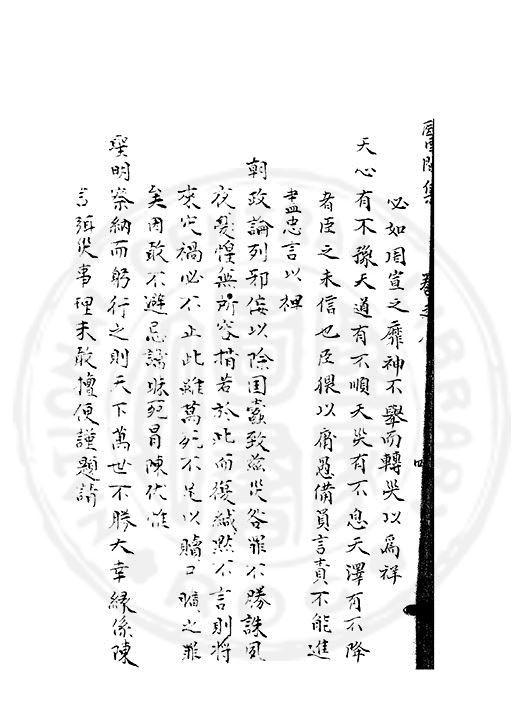 必如周宣之靡神不舉而轉災以爲祥
天心有不豫天道有不順天災有不息天澤有不降
者臣之未信也臣猥以庸愚備員言責不能進
盡忠言以裨
朝政論列邪佞以除国蠹致茲災咎罪不勝誅夙
夜憂惶無所容措若於此而復緘默不言則將
來之禍必不止此雖萬死不足以贖曠之罪
矣因敢不避忌諱昧死冒陳伏惟
聖明察納而躬行之則天下萬世不勝大幸緣係陳
言弭災事理未敢擅便謹題請